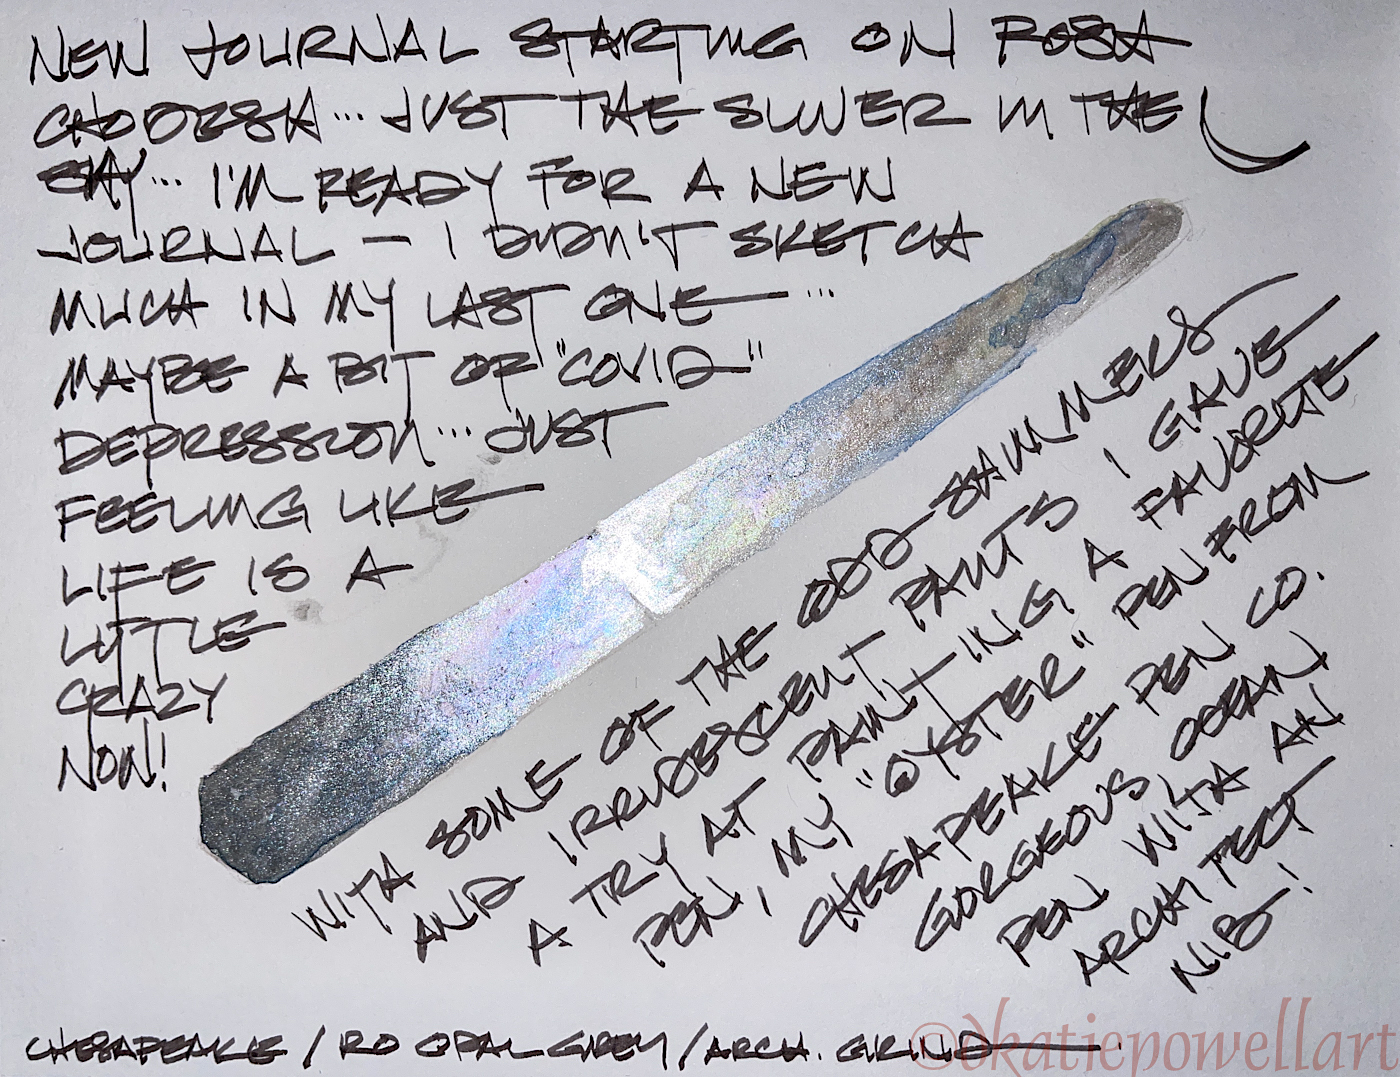 NEW JOURNAL STARTING ON ROSH
CHODESH... JUST THE SLIVER IN THE
SKY... I'M READY FOR A NEW
JOURNAL — I DIDN'T SKETCH
MUCH IN MY LAST ONE ...
MAYBE A BIT OF "COVID"
DEPRESSION... JUST
FEELING LIKE
LIFE IS A
LITTLE
CRAZY
NOW!
WITH SOME OF THE ODD SHIMMERS
AND IRRIDESCENT PAINTS I GAVE
A TRY AT PAINTING A FAVORITE
PEN, MY "OYSTER" PEN FROM
CHESAPEAKE PEN CO.
GORGEOUS, OCEAN
PEN WITH AN
ARCHITECT
NIB!
CHESAPEAKE / RO OPAL GREY / ARCH. GRIND
©dkatiepowellart